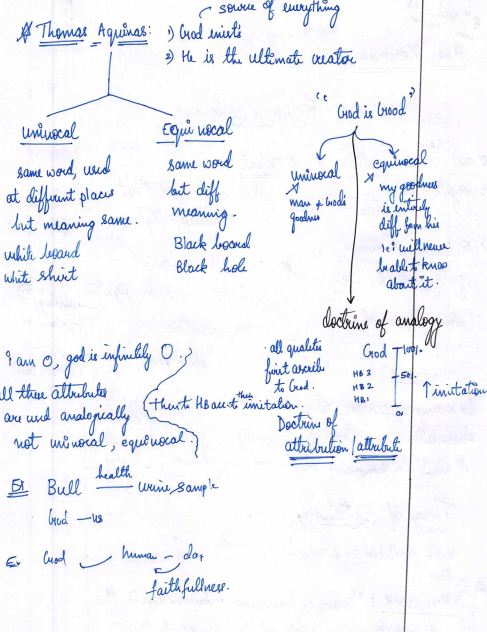 source of everything
Thomas Aquinas: 1) God exists
2) He is the ultimate creator
Univocal
same word, used
at different places
but meaning same.
white board
white shirt
Equivocal
same word
but diff
meaning.
Black board
Black hole
"God is Good"
univocal
man + God's
goodness
equivocal
my goodness
is entirely
diff from his
i.e. will never
be able to know
about it.
doctrine of analogy
all qualities
first ascribe
to God.
God 100%
HB 3 50%
HB 2
HB1
0%
↑ imitation
Doctrine of
attribution / attribute
I am O, god is infinitely O.
all these attributes
are used analogically
not univocal, equivocal.
then to HB acc to their imitation.
Ex Bull health urine, sample
God — us
Ex God human - dog
faithfullness.